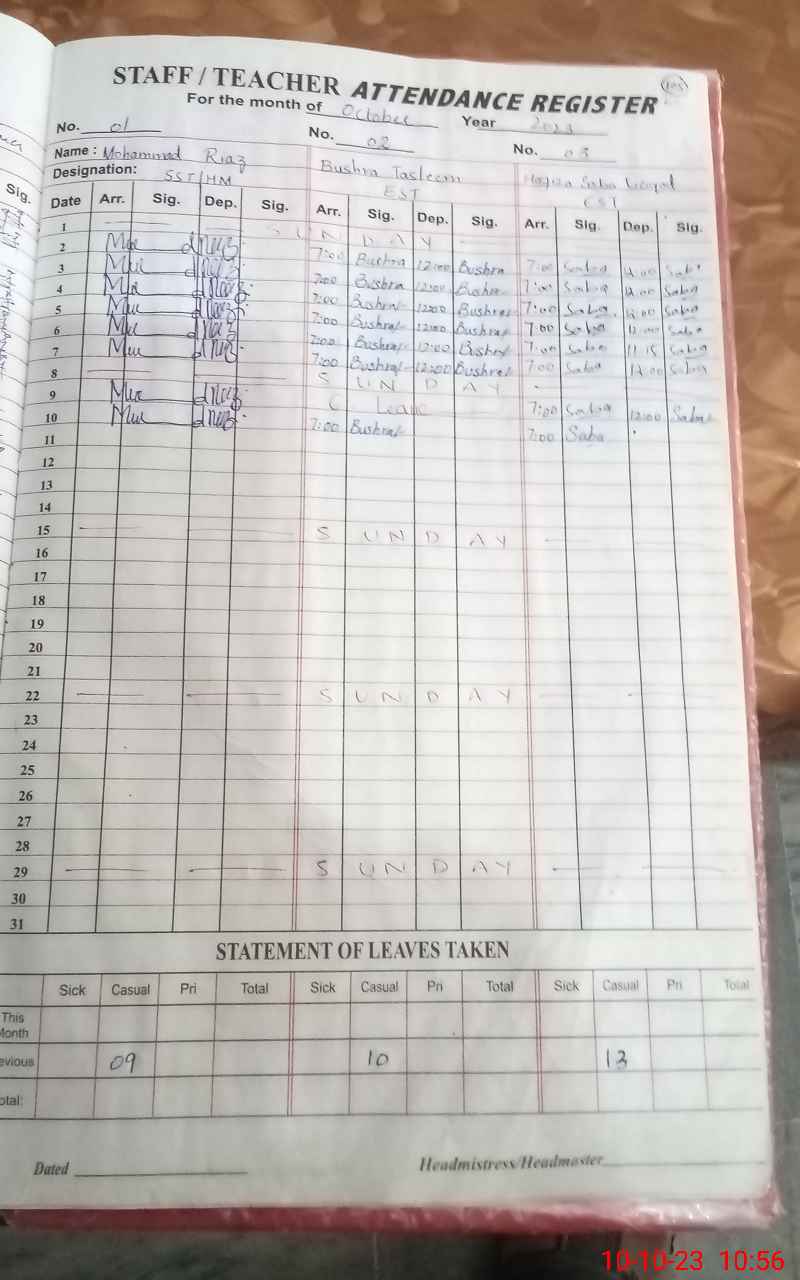 105
STAFF / TEACHER ATTENDANCE REGISTER
For the month of October Year 2023
No. 01 No. 02 No. 03
Name : Mohammad Riaz Bushra Tasleem Saba
Designation: SST/HM EST EST
Sig.
Date Arr. Sig. Dep. Sig. Arr. Sig. Dep. Sig. Arr. Sig. Dep. Sig.
1 SUNDAY
2 7:00 Bushra 12:00 Bushra 7:00 Saba 12:00 Saba
3 7:00 Bushra 12:00 Bushra 7:00 Saba 12:00 Saba
4 7:00 Bushra 12:00 Bushra 7:00 Saba 12:00 Saba
5 7:00 Bushra 12:00 Bushra 7:00 Saba 12:00 Saba
6 7:00 Bushra 12:00 Bushra 7:00 Saba 11:15 Saba
7 7:00 Bushra 12:00 Bushra 7:00 Saba 12:00 Saba
8 SUNDAY
9 C Leave 7:00 Saba 12:00 Saba
10 7:00 Bushra 7:00 Saba
11
12
13
14
15 SUNDAY
16
17
18
19
20
21
22 SUNDAY
23
24
25
26
27
28
29 SUNDAY
30
31
STATEMENT OF LEAVES TAKEN
Sick Casual Pri Total Sick Casual Pri Total Sick Casual Pri Total
This
Month
evious 09 10 13
otal:
Dated Headmistress/Headmaster
10-10-23 10:56